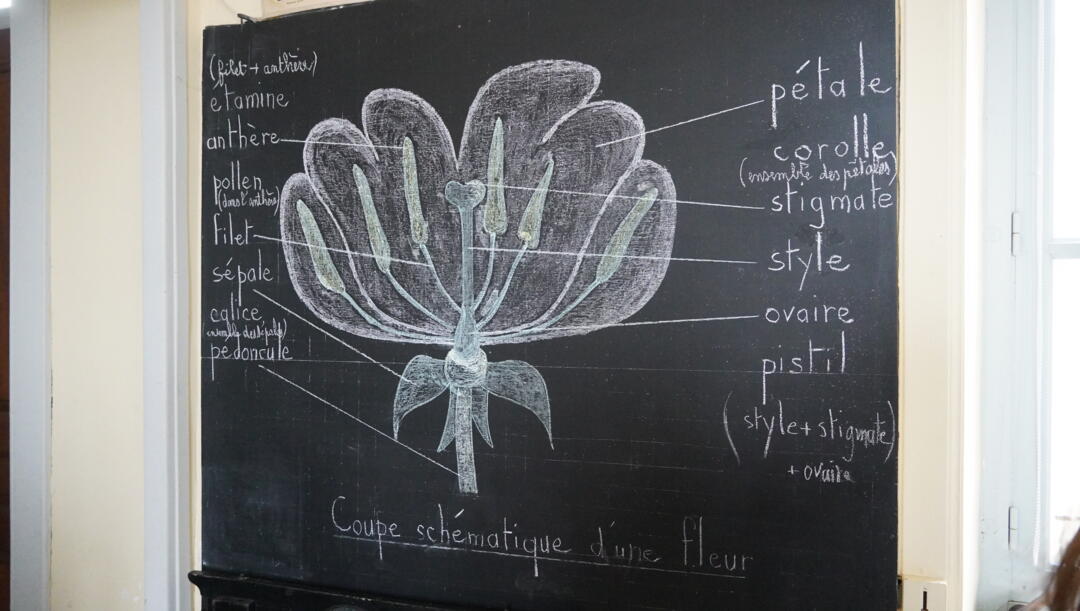 (filet + anthère)
étamine
anthère
pollen
(dans l'anthère)
filet
sépale
calice
(ensemble des sépales)
pédoncule
pétale
corolle
(ensemble des pétales)
stigmate
style
ovaire
pistil
(style + stigmate)
+ ovaire
Coupe schématique d'une fleur